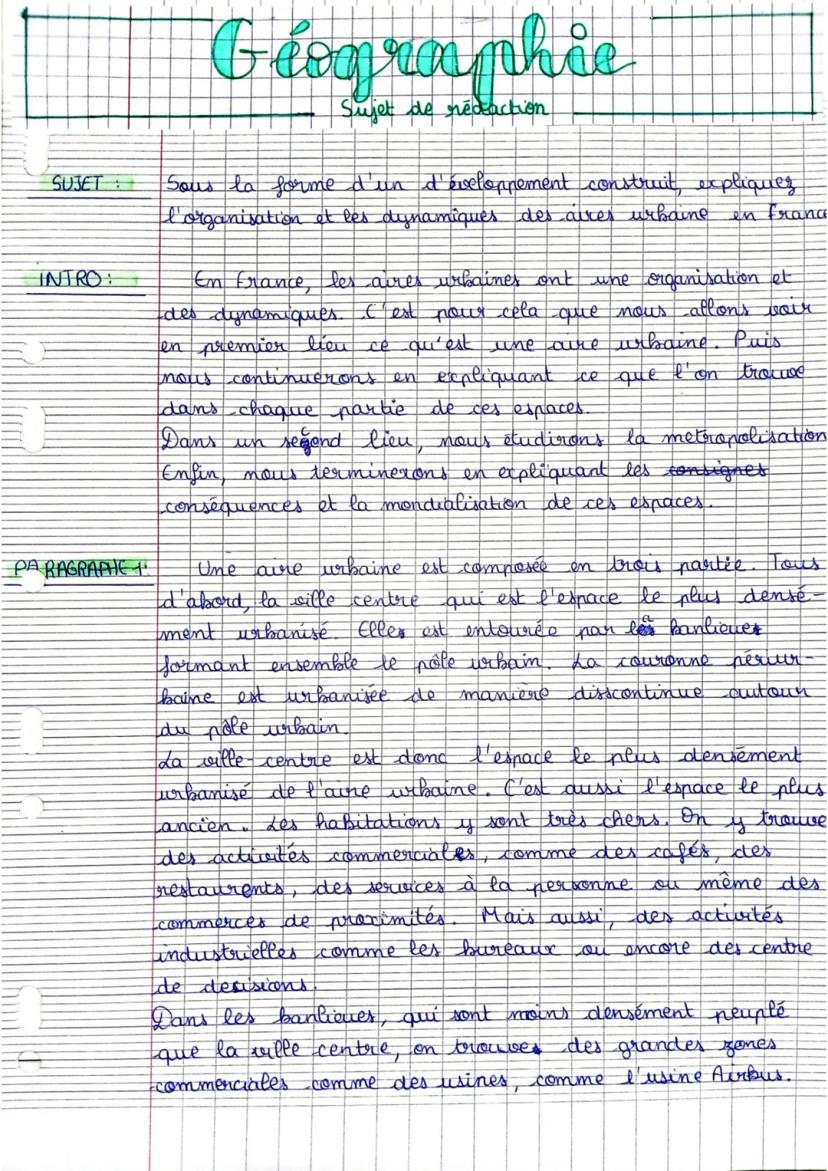 Géographie
Sujet de rédaction
SUJET : Sous la forme d'un d'éveloppement construit, expliquez
l'organisation et les dynamiques des aires urbaine en France
INTRO : En France, les aires urbaines ont une organisation et
des dynamiques. C'est pour cela que nous allons voir
en premier lieu ce qu'est une aire urbaine. Puis
nous continuerons en expliquant ce que l'on trouve
dans chaque partie de ces espaces.
Dans un second lieu, nous étudirons la metropolisation
Enfin, nous terminerons en expliquant les consignes
conséquences et la mondialisation de ces espaces.
PARAGRAPHE 1: Une aire urbaine est composée en trois partie. Tous
d'abord, la ville centre qui est l'espace le plus densé-
ment urbanisé. Elles est entourée par la banlieue
formant ensemble le pôle urbain. La couronne périur-
baine est urbanisée de manière disscontinue autour
du pôle urbain.
La ville-centre est donc l'espace le plus densément
urbanisé de l'aire urbaine. C'est aussi l'espace le plus
ancien. Les habitations y sont très chers. On y trouve
des activités commerciales, comme des cafés, des
restaurents, des services à la personne ou même des
commerces de proximités. Mais aussi, des activités
industrielles comme les bureaux ou encore des centre
de desisions.
Dans les banlieues, qui sont moins densément peuplé
que la ville centre, on trouve des grandes zones
commerciales comme des usines, comme l'usine Airbus.